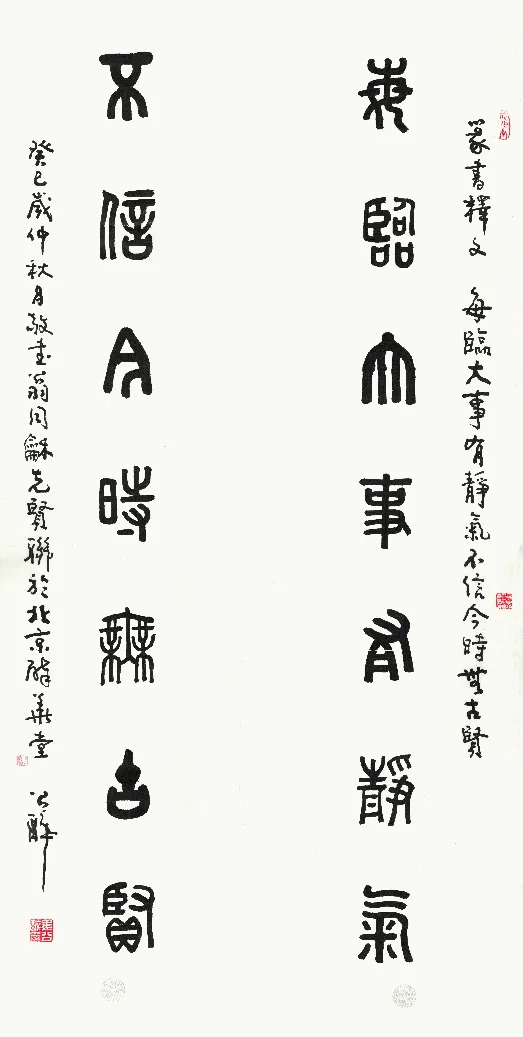 篆書釋文 每臨大事有靜氣不信今時無古賢
每臨大事有靜氣
不信今時無古賢
癸巳歲仲秋月敬書翁同龢先賢聯於北京醉墨堂